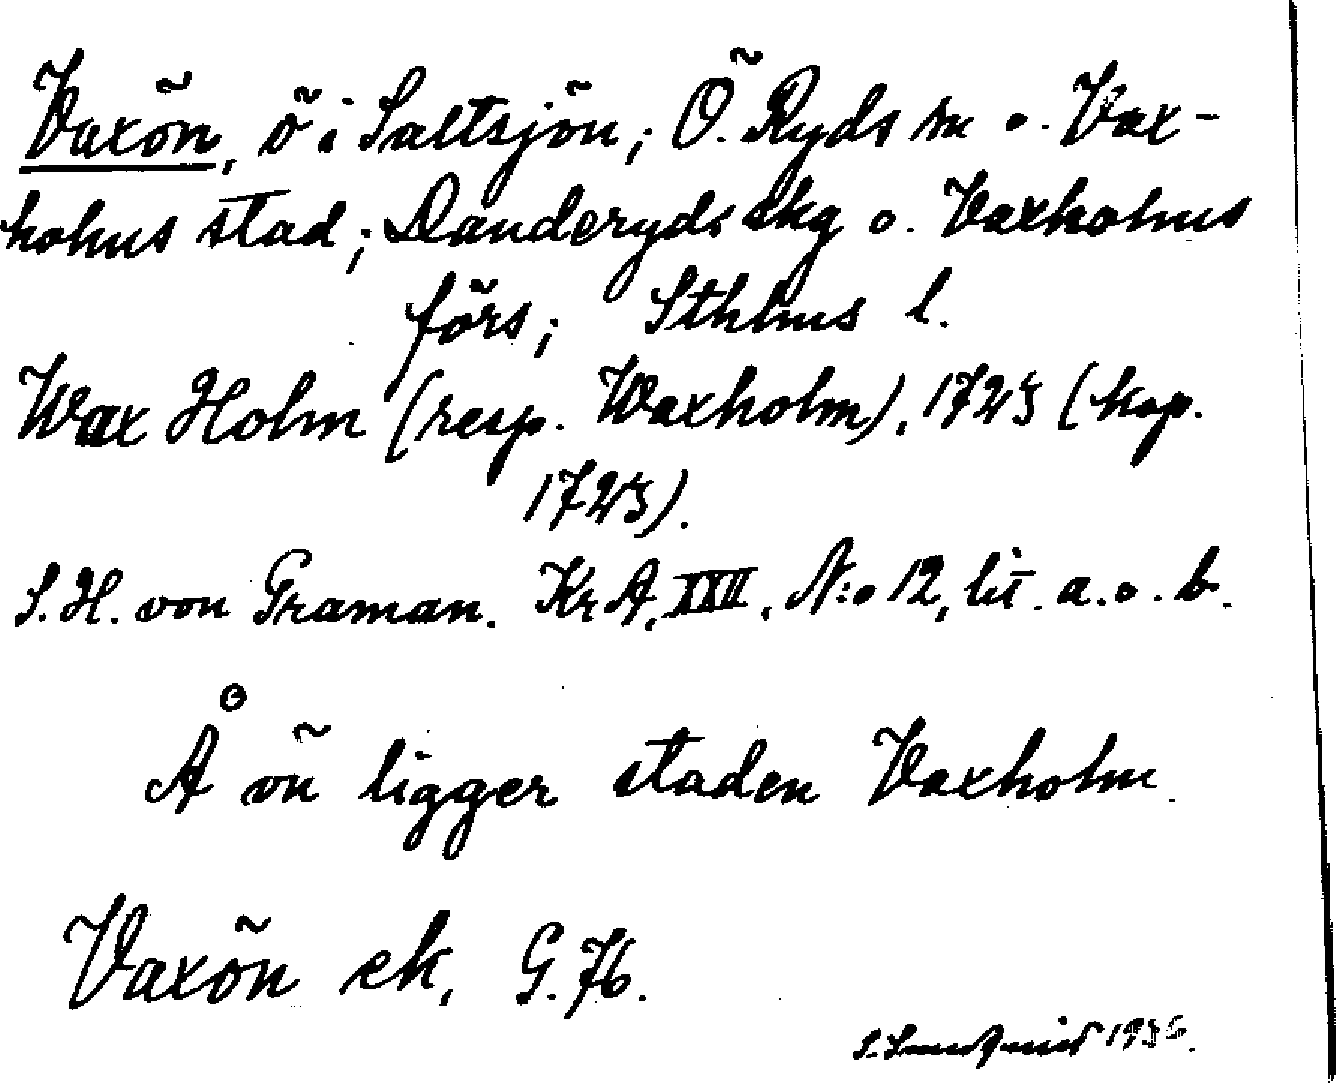 Vaxön, ö i Saltsjön; Ö. Ryds sn o. Vax-
holms stad; Danderyds skg o. Vaxholms
förs; Sthlms l.
Wax Holm (resp. Waxholm), 1723 (kop.
1723).
S. H. von Graman. Kr A, XXII, N:o 12, lit. a. o. b.
Å ön ligger staden Vaxholm.
Vaxön ek, G. 76.
S. Sundqvist 1936.